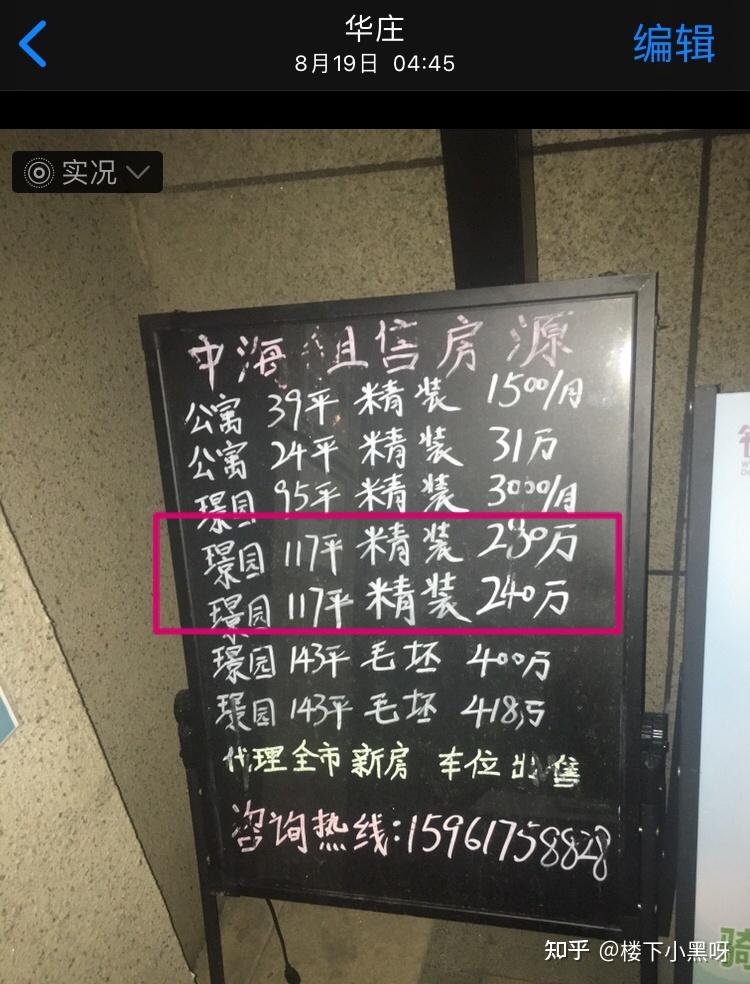 华庄
8月19日 04:45
编辑
实况
中海 租售房源
公寓 39平 精装 1500/月
公寓 24平 精装 31万
璟园 95平 精装 3000/月
璟园 117平 精装 230万
璟园 117平 精装 240万
璟园 143平 毛坯 400万
璟园 143平 毛坯 418万
代理全市新房 车位出售
咨询热线:15961758828
骑
知乎 @楼下小黑呀